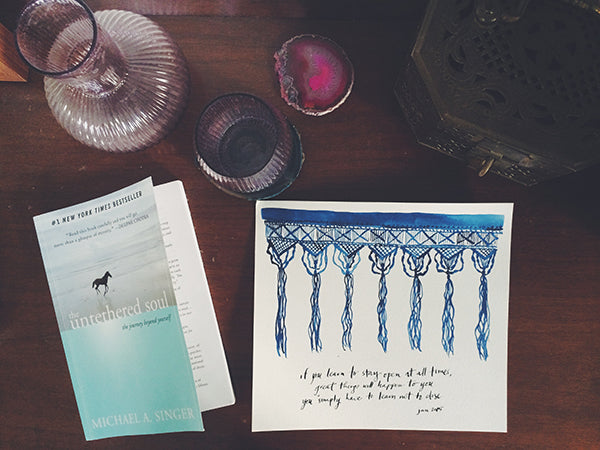 #1 NEW YORK TIMES BESTSELLER
"Read this book carefully and you will get
more than a glimpse of eternity." —DEEPAK CHOPRA
the
untethered soul
the journey beyond yourself
MICHAEL A. SINGER
if you learn to stay open at all times,
great things will happen to you
you simply have to learn not to close.